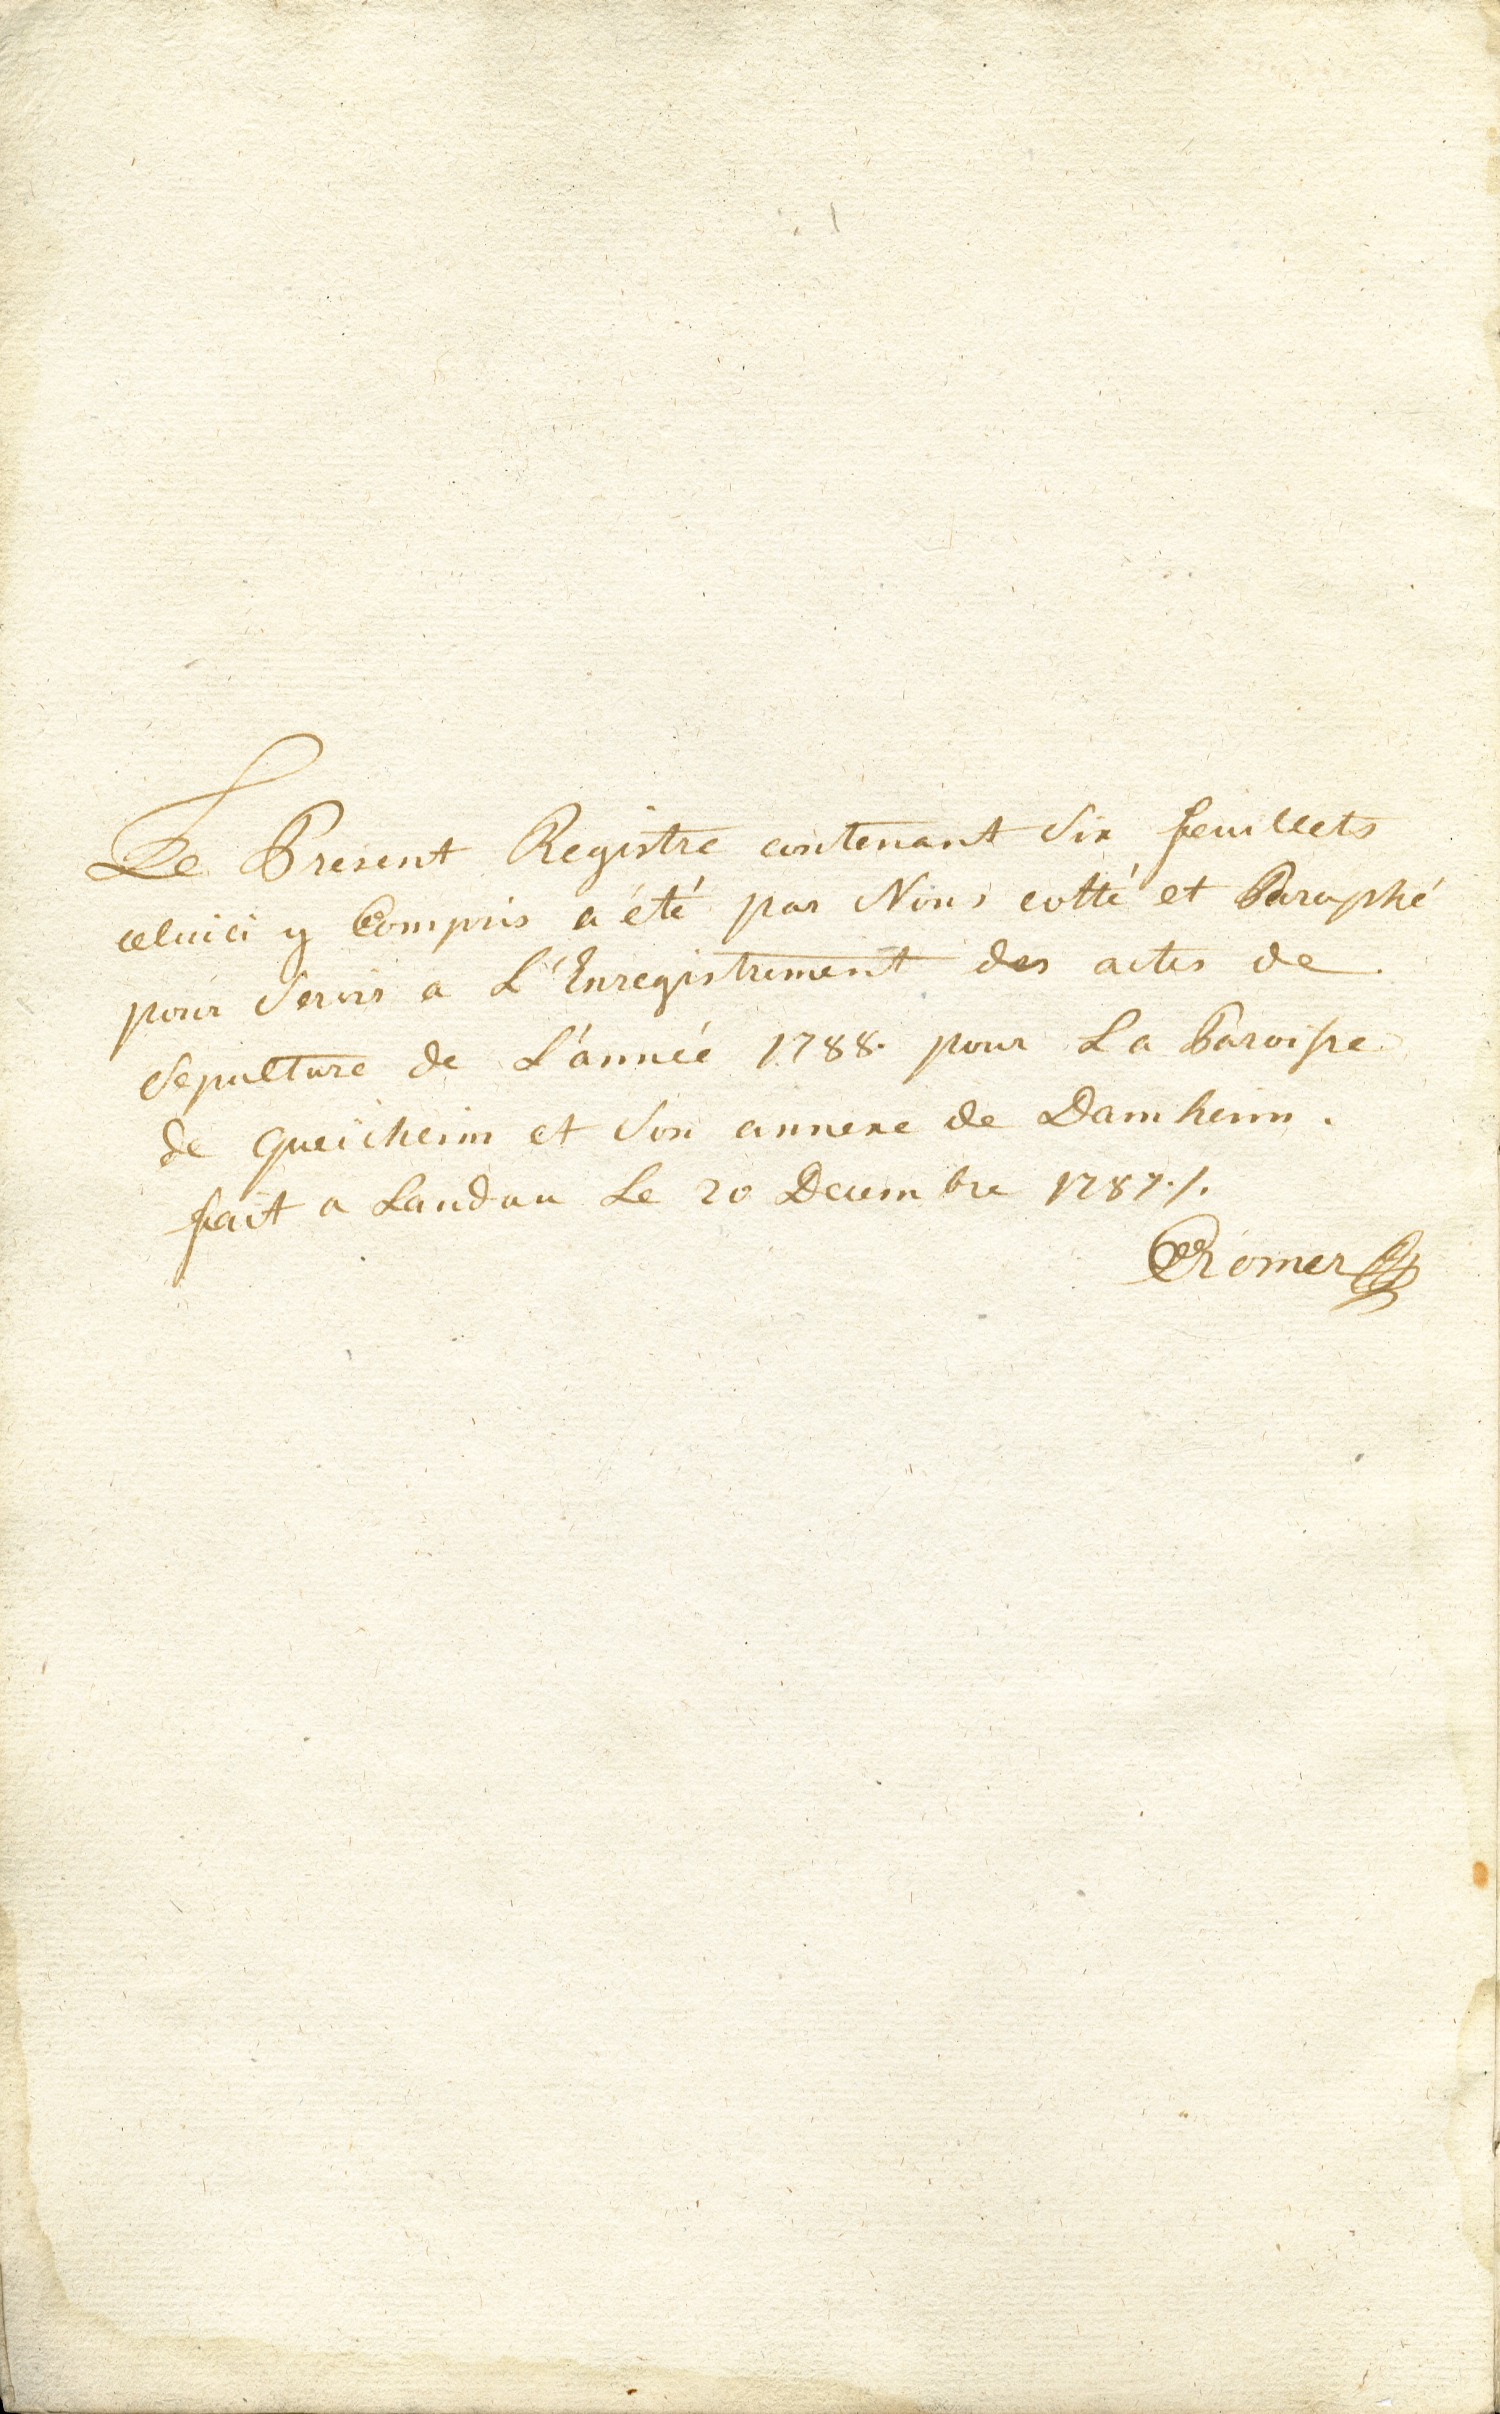 Le Present Registre contenant Six feuillets
celuici y Compris a été par Nous cotté et Paraphé
pour Servir a L'Enregistrement des actes de
Sepulture de L'année 1788. pour La Paroisse
de Queicheim et Son annexe de Damheim.
fait a Landau Le 20 Decembre 1787./.
Römer